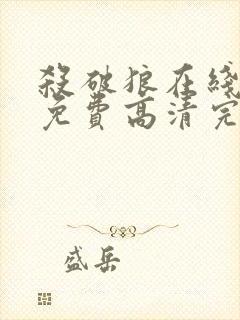 殺破狼在綫
免費高清完
盛岳